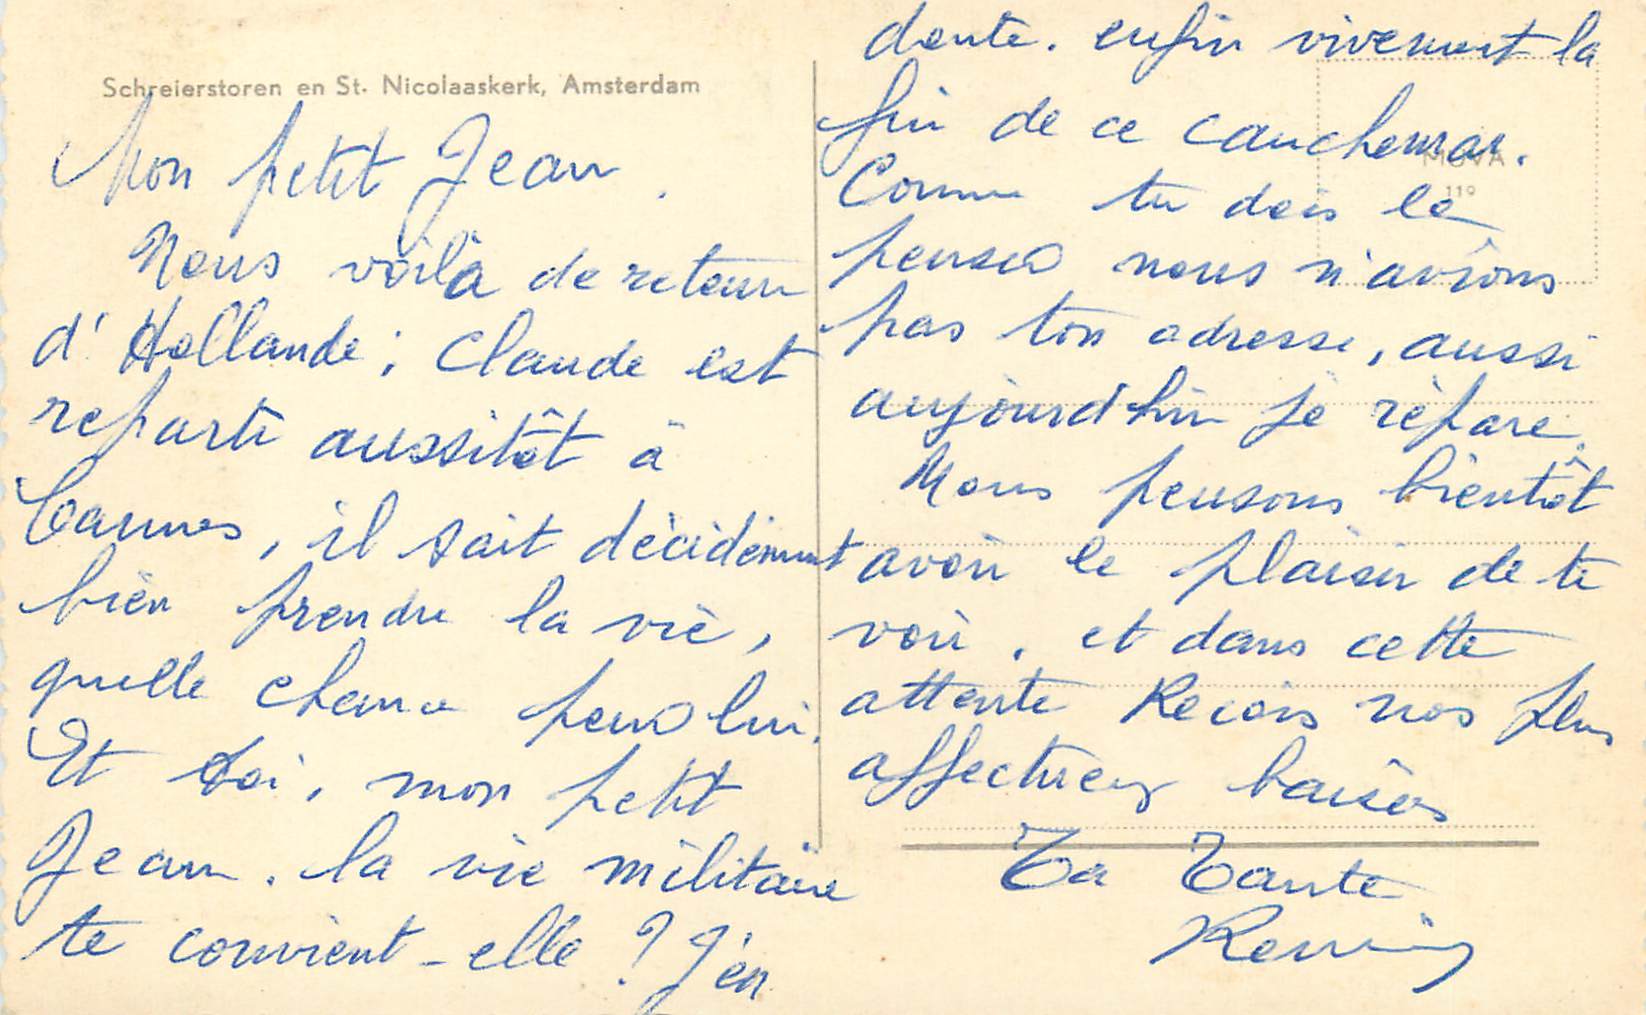 Schreierstoren en St. Nicolaaskerk, Amsterdam
Mon petit Jean.
Nous voilà de retour
d'Hollande; Claude est
reparti aussitôt à
Cannes, il sait décidément
bien prendre la vie,
quelle chance pour lui.
Et toi, mon petit
Jean. la vie militaire
te convient-elle? J'en
doute. enfin vivement la
fin de ce cauchemar.
Comme tu dois le
penser nous n'avions
pas ton adresse, aussi
aujourd'hui je répare.
Nous pensons bientôt
avoir le plaisir de te
voir. et dans cette
attente Recois nos plus
affectueux baisers
Ta Tante
MUVA
119